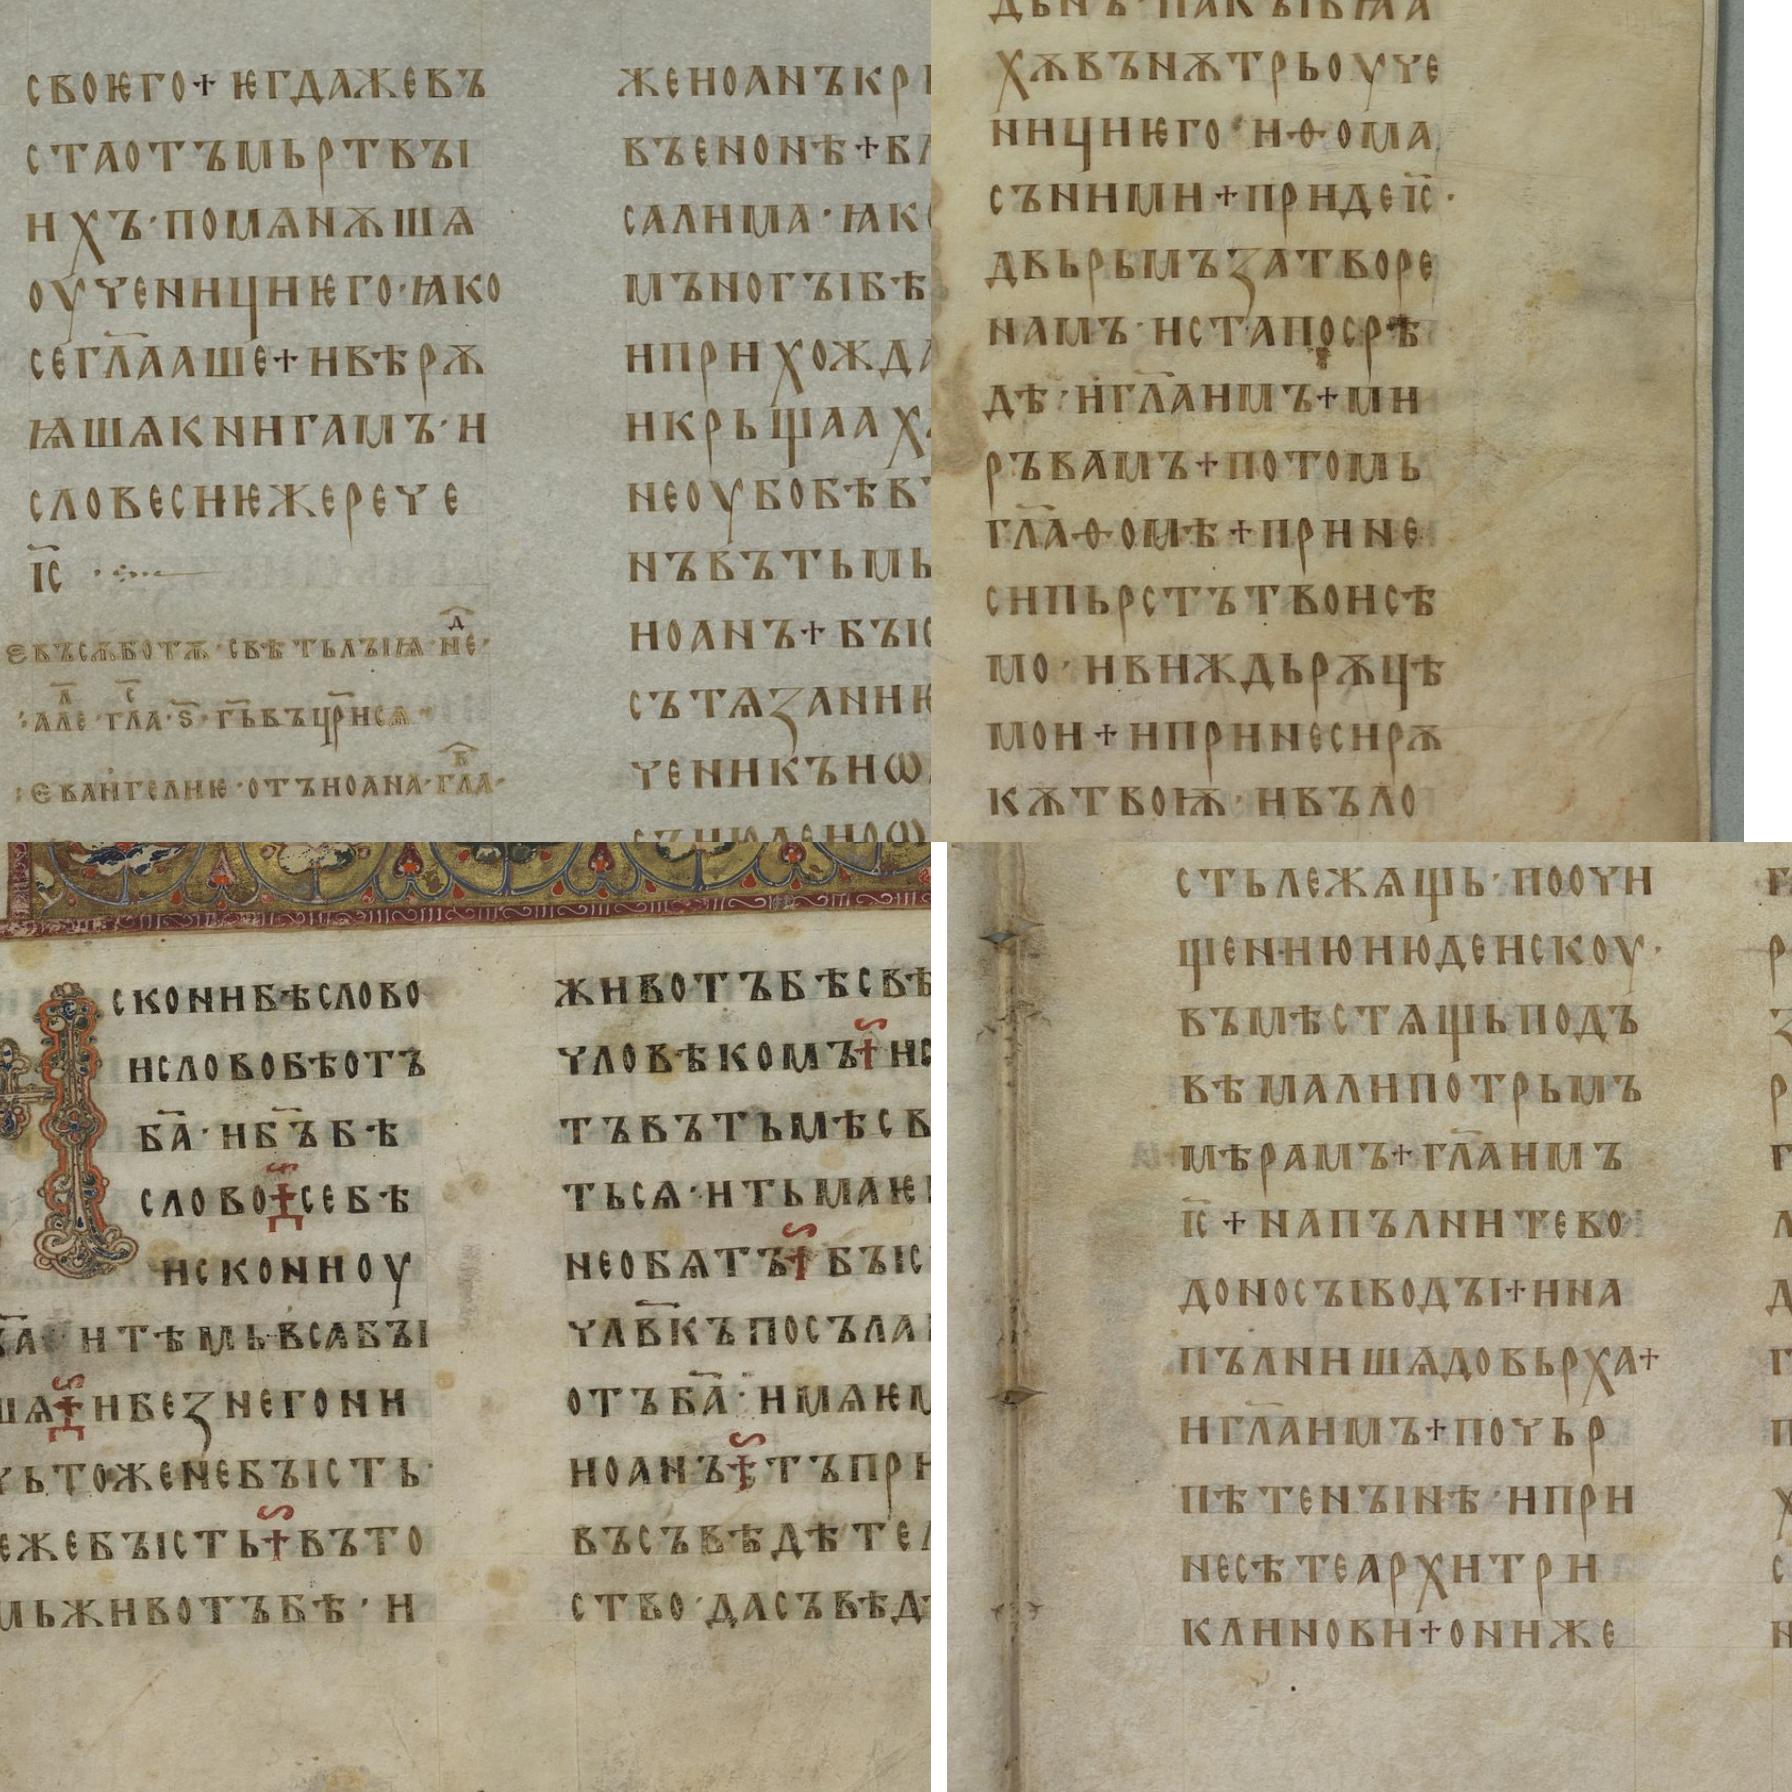 своѥго+ѥгдажевъ
стаотъмьртвꙑ
ихъ·помѧнѫшѧ
оученициѥго·ꙗко
сегл҃ааше+ивѣрѫ
ꙗшѧкнигамъ·и
словесиѥжерече
і҃с
въсѫботѫ·свѣтьлꙑѩ·нед҃·
але·гла·ѕ҃·г҃ьвъц҃рисѧ
еваньгелиѥ·отъиоана·гла·
женоанъкр
въенонѣ+бл
салима·ꙗк
мъногꙑбѣ
иприхожда
икрьщаах
неоубобѣв
нъвътьмь
иоанъ+бꙑс
сътѧзаниѥ
ченикъиѡ
дьнъпакꙑбѣа
хѫвънѫтрьоуче
ницииего·иѳома
съними+придеі҃с·
двьрьмъзатворе
намъ·истапосрѣ
дѣ·игл҃аимъ+ми
ръвамъ+потомь
гл҃аѳомѣ+прине
сипьрстътвоисѣ
мо·ивиждьрѫцѣ
мои+ипринесирѫ
кѫтвоѭ·ивъло
сконибѣслово
исловобѣотъ
б҃а·иб҃ъбѣ
слово+себѣ
исконноу
б҃а·итѣмьвсабꙑ
шѧ+ибезнегони
чьтоженебꙑсть·
ежебꙑсть+въто
мьживотъбѣ·и
животъбѣсвѣ
чловѣкомъ+ис
тъвътьмѣсв
тьсѧ·итьмаѥ
необѧтъ+бꙑс
чл҃вкъпосъла
отъб҃а·имѧѥм
иоанъ+тъпри
въсъвѣдѣтел
ство·дасъвѣд
стьлежѧщь·поочи
щениюиюденскоу·
въмѣстѧщьподъ
вѣмалипотрьмъ
мѣрамъ+гл҃аимъ
і҃с+напълнитево
доносꙑводꙑ+ина
пълнишѧдовьрха+
игл҃аимъ+почьр
пѣтенꙑнѣ·ипри
несѣтеархитри
клинови+ониже